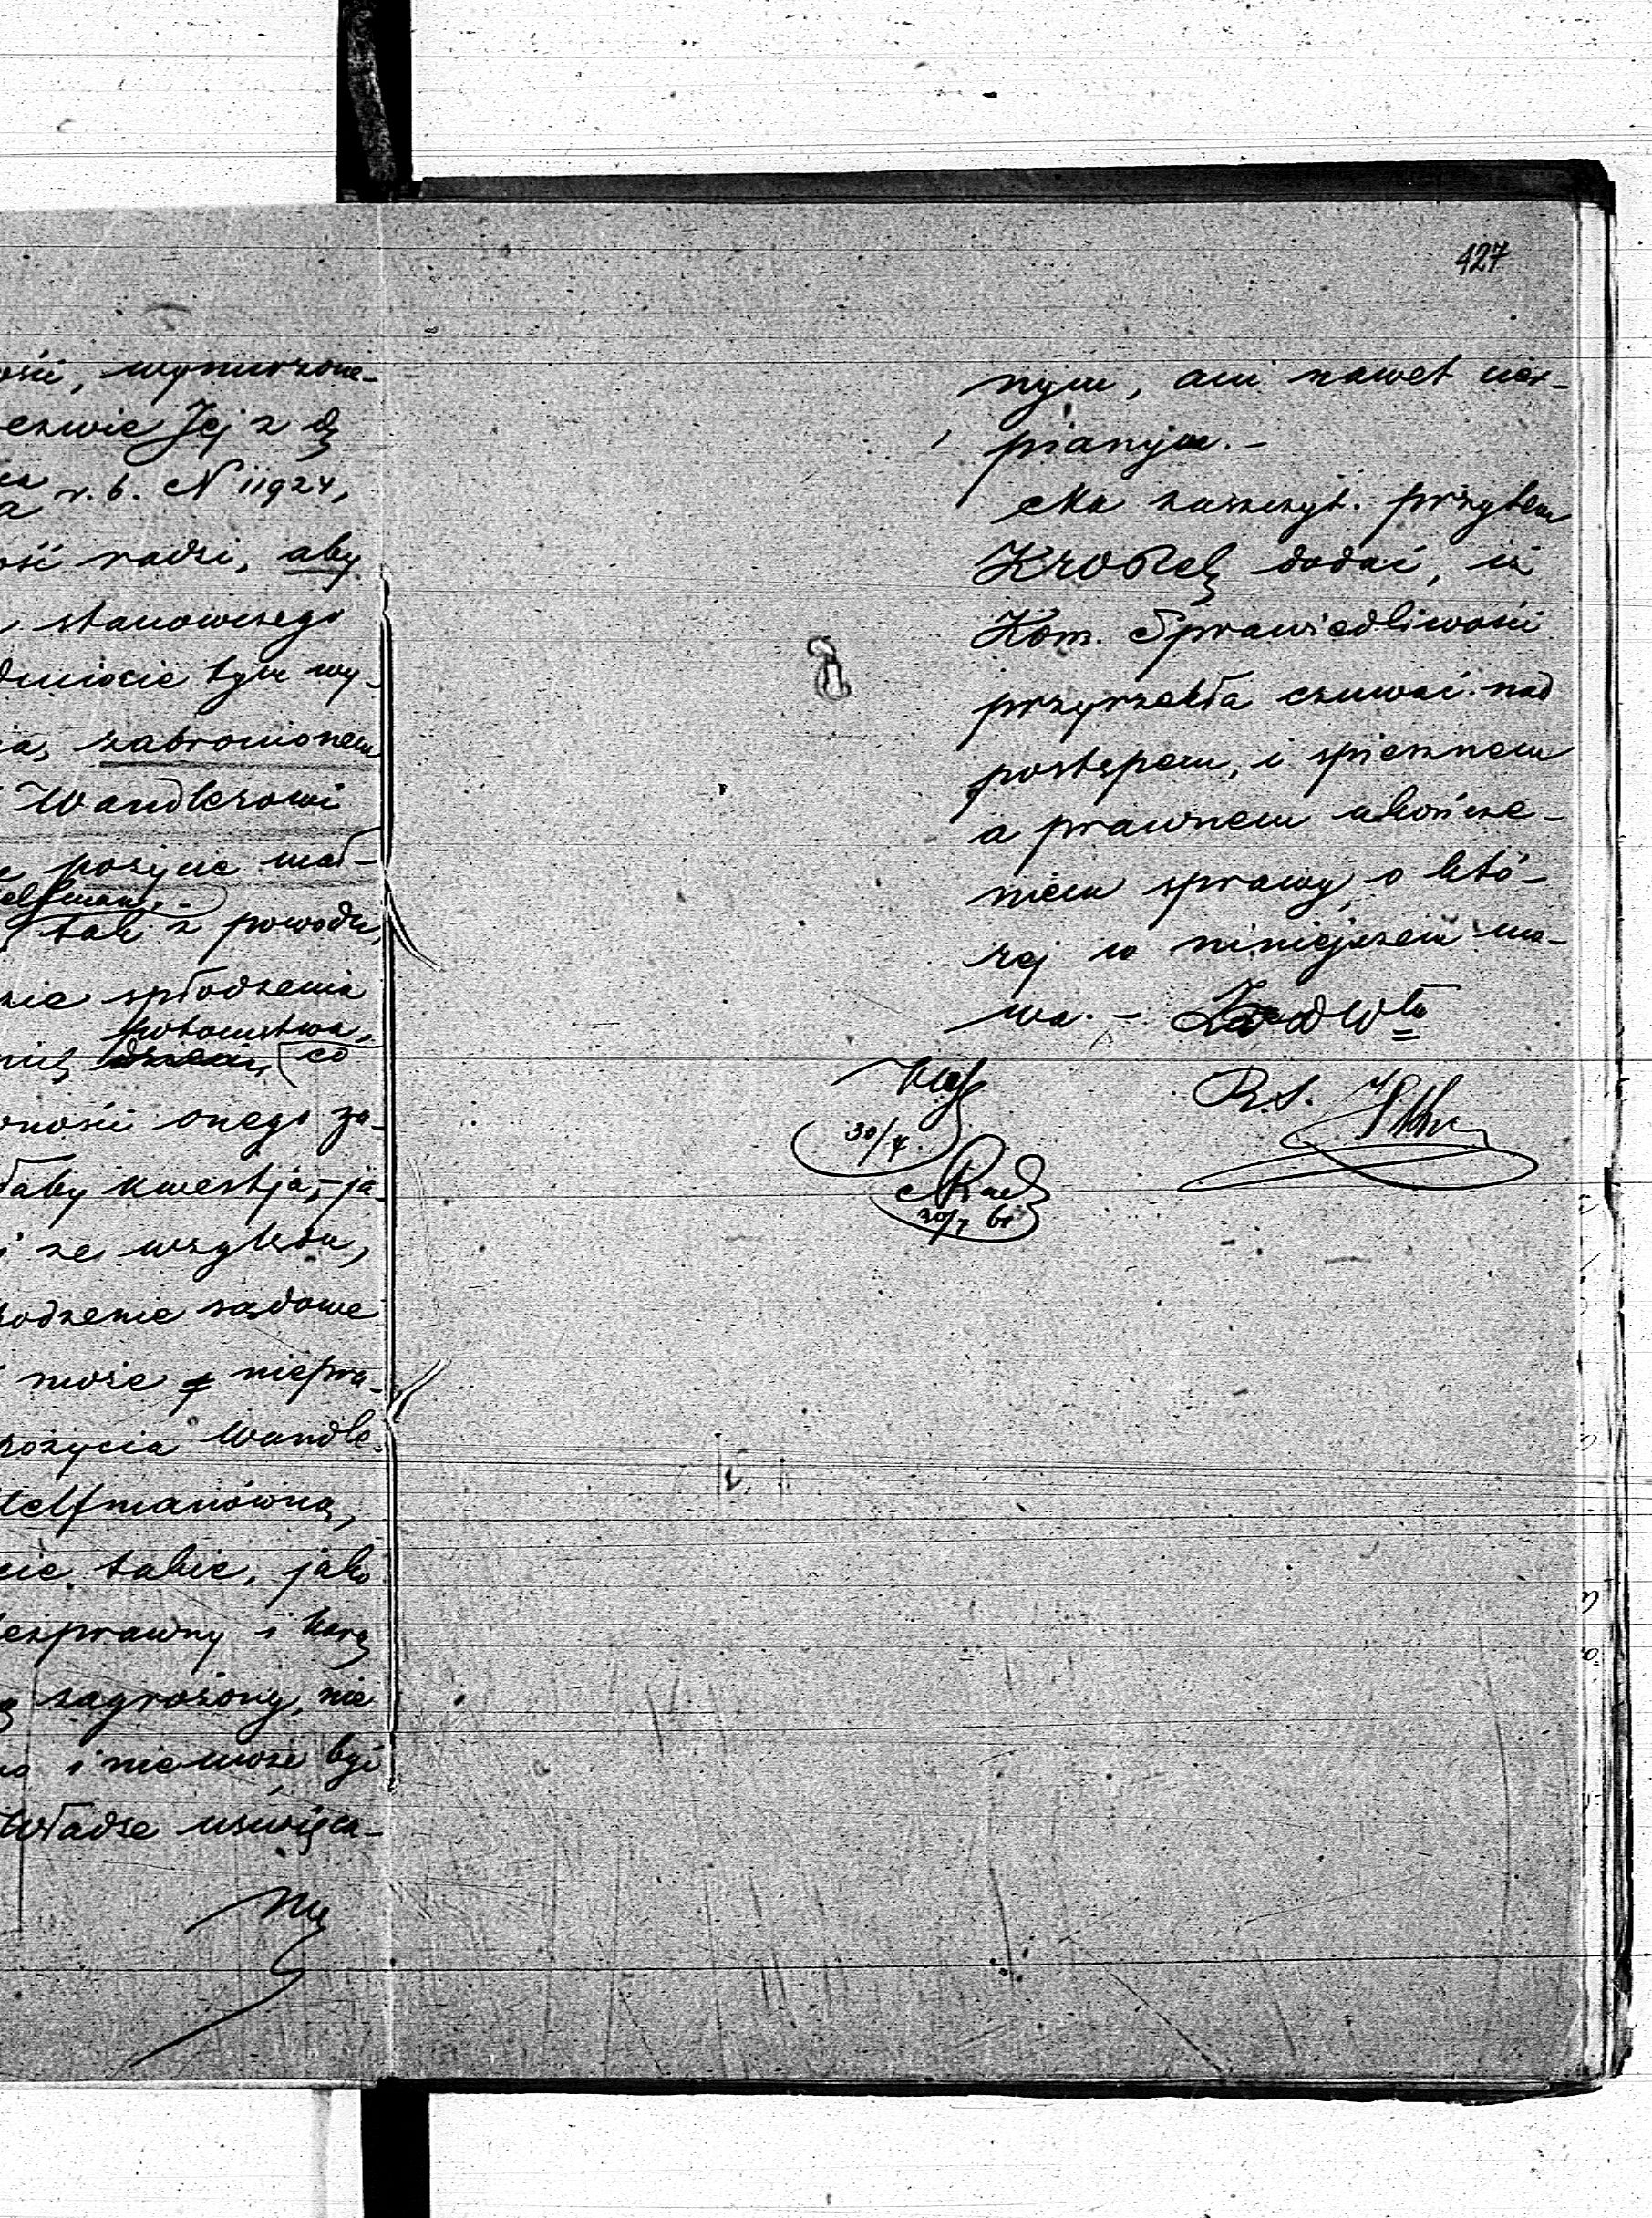 ości, wynurzone-
ezwie Jej z d
r. b. N 11924,
ość radzi, aby
stanowczego
dmiocie tym wy-
zabronionem
Wandlerowi
pożycie mał-
tak z powodu,
spłodzenia
potomstwa,
co
oności onego za-
łaby kwestja, ja-
i ze względu,
rodzenie sądowe
może niepra-
pożycia Wandle-
Helfmanówną,
nie takie, jako
bezprawny i karą
zagrożony, nie
i nie może być
Władze uświęca-
427
nym, ani nawet cier-
pianym. -
Ma zaszczyt. przytem
dodać, iż
Kom. Sprawiedliwości
przyrzekła czuwać nad
postępem, i spiesznem
a prawnem ukończe-
niem sprawy, o któ-
rej w niniejszem mo-
wa. -
R. S.
30/7
30/7 61